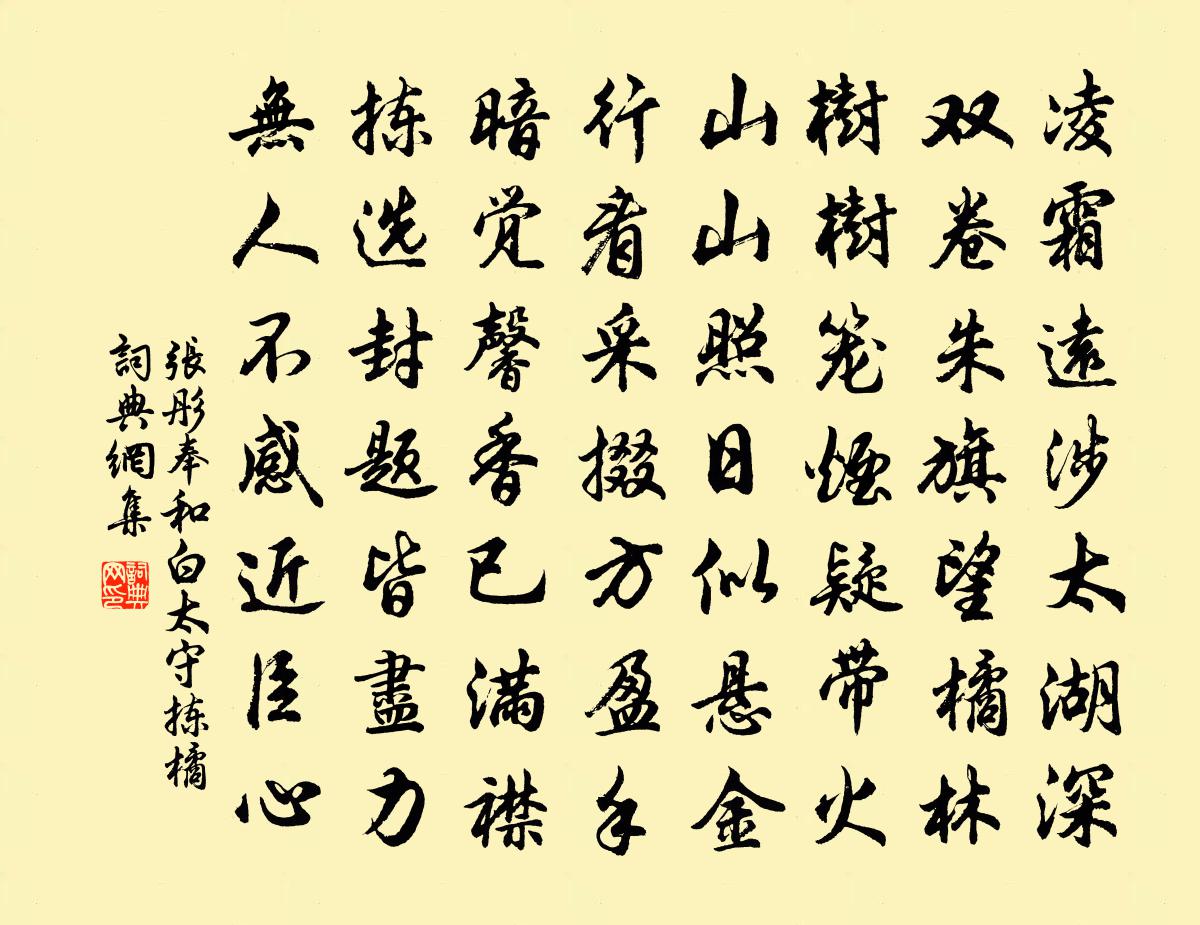 凌霜遠涉太湖深
双卷朱旗望橘林
樹樹笼煙疑带火
山山照日似悬金
行看采掇方盈手
暗觉馨香已满襟
拣选封题皆盡力
無人不感近臣心
張彤奉和白太守拣橘
詞典網集
詞典网印